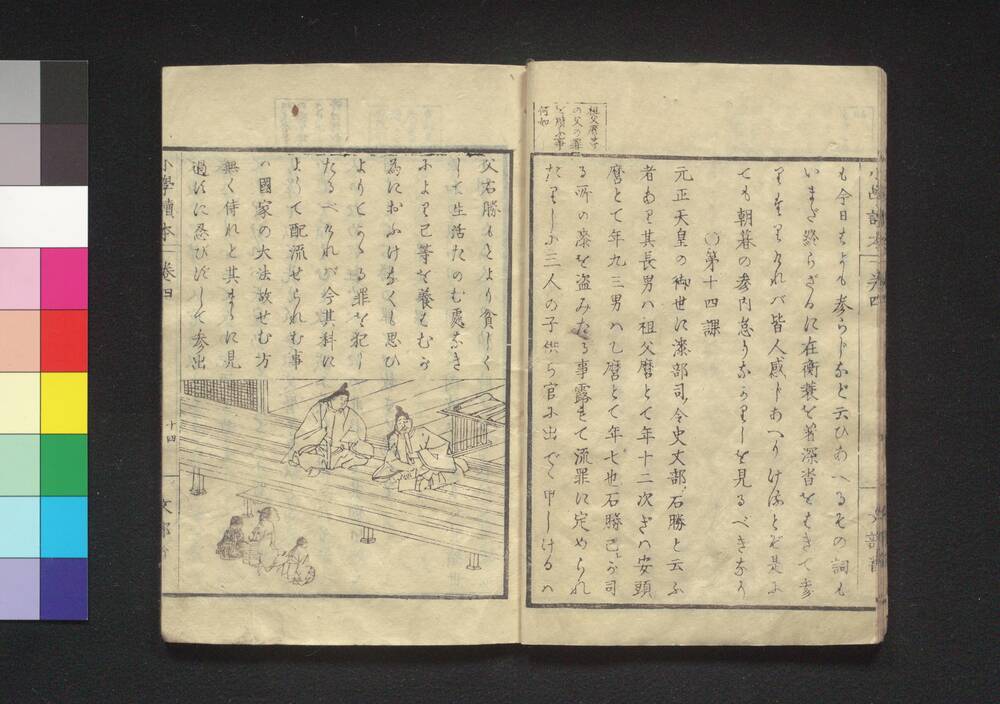 も今日もよも参らじなど云ひあへるその詞も
いまだ終らざるに在衡蓑を著深沓をはきて参
りけれバ皆人感じあへりけるとぞ是に
ても朝暮の参内怠りなかりしを見るべきなり
〇第十四課
元正天皇の御世に漆部司令史丈部石勝と云ふ
者あり其長男ハ祖父麿とて年十二次ぎハ安頭
麿とて年九三男ハ乙麿とて年七也石勝己が司
る所の漆を盗みたる事露はれて流罪に定められ
たりしに三人の子供ら官に出でゝ申しけるハ
祖父麿等
の父の罪
を贖ふ事
何如
父石勝もとより貧しく
して生活たのむ處なき
により己等を養はむが
為におふけなくも思ひ
よりてかゝる罪を犯し
たるべけれバ今其科に
よりて配流せられむ事
ハ國家の大法故せむ方
無く侍れど其まゝに見
過すに忍びずして参出
小學讀本
巻四
十四
文部省